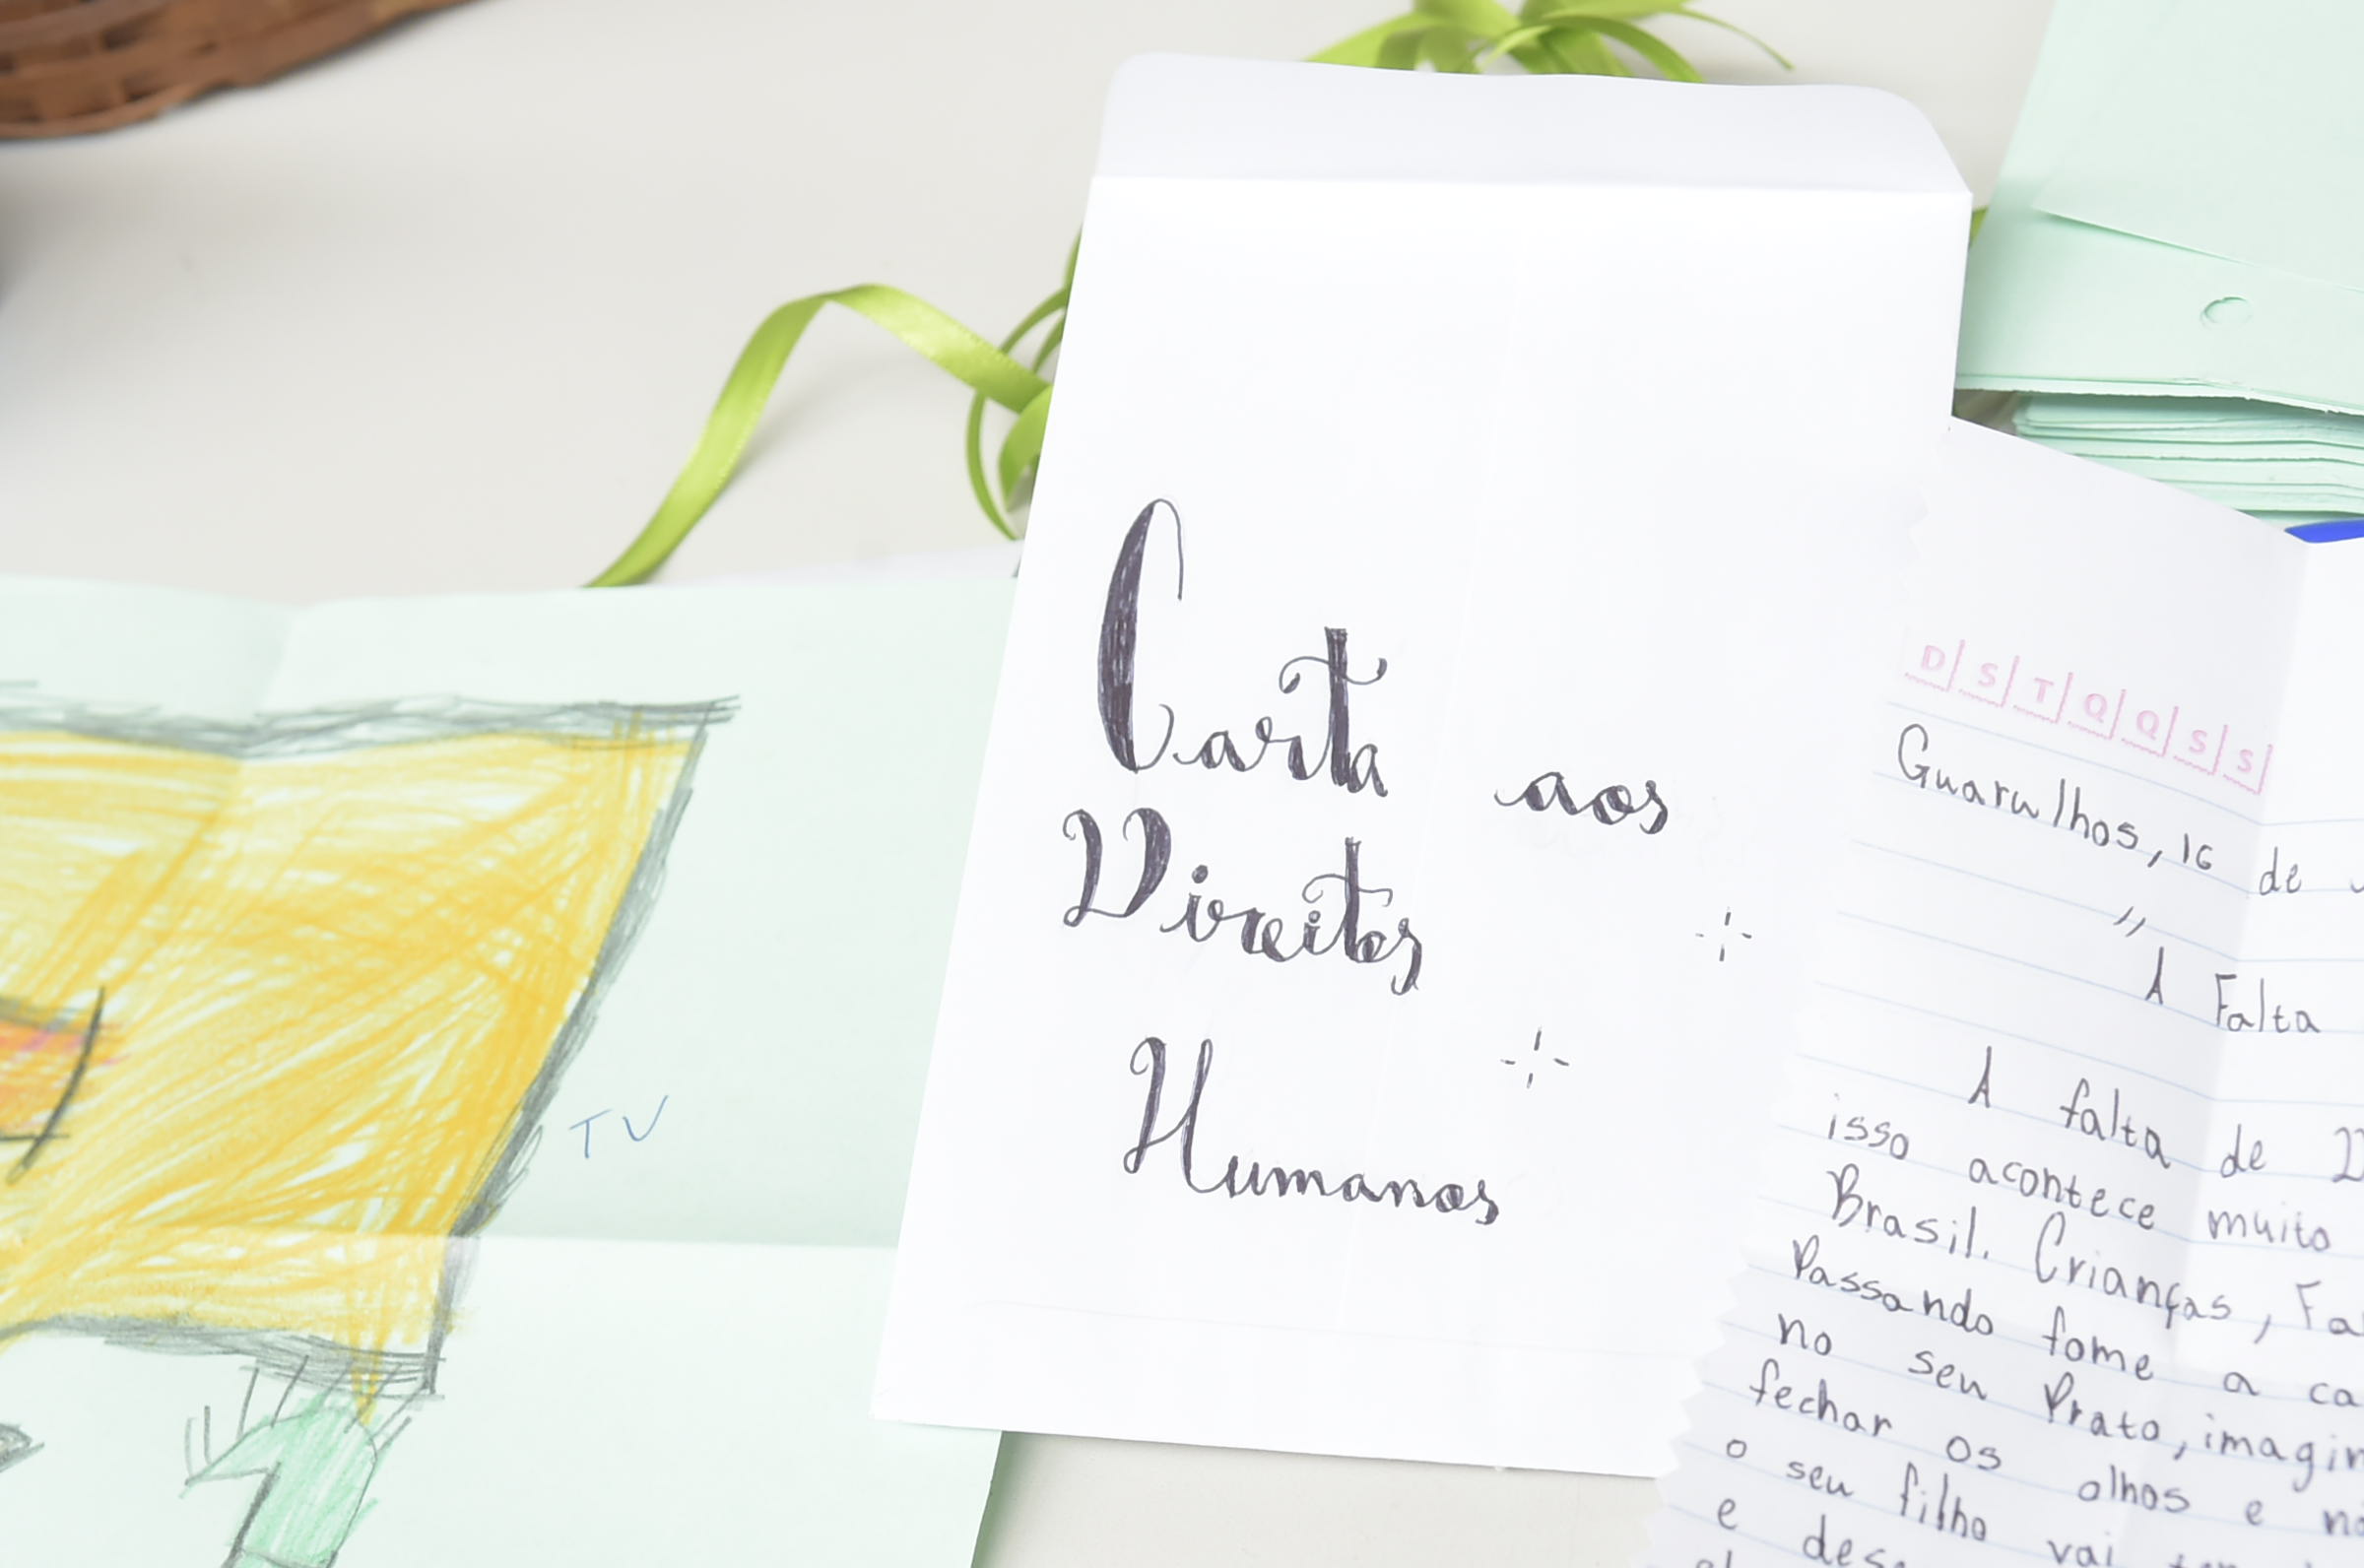 TV
Carta aos
Direitos
Humanos
D S T Q Q S S
Guarulhos, 16 de
"A Falta
A falta de
isso acontece muito
Brasil. Crianças,
Passando fome a
no seu Prato,
fechar os olhos e
o seu filho vai
e